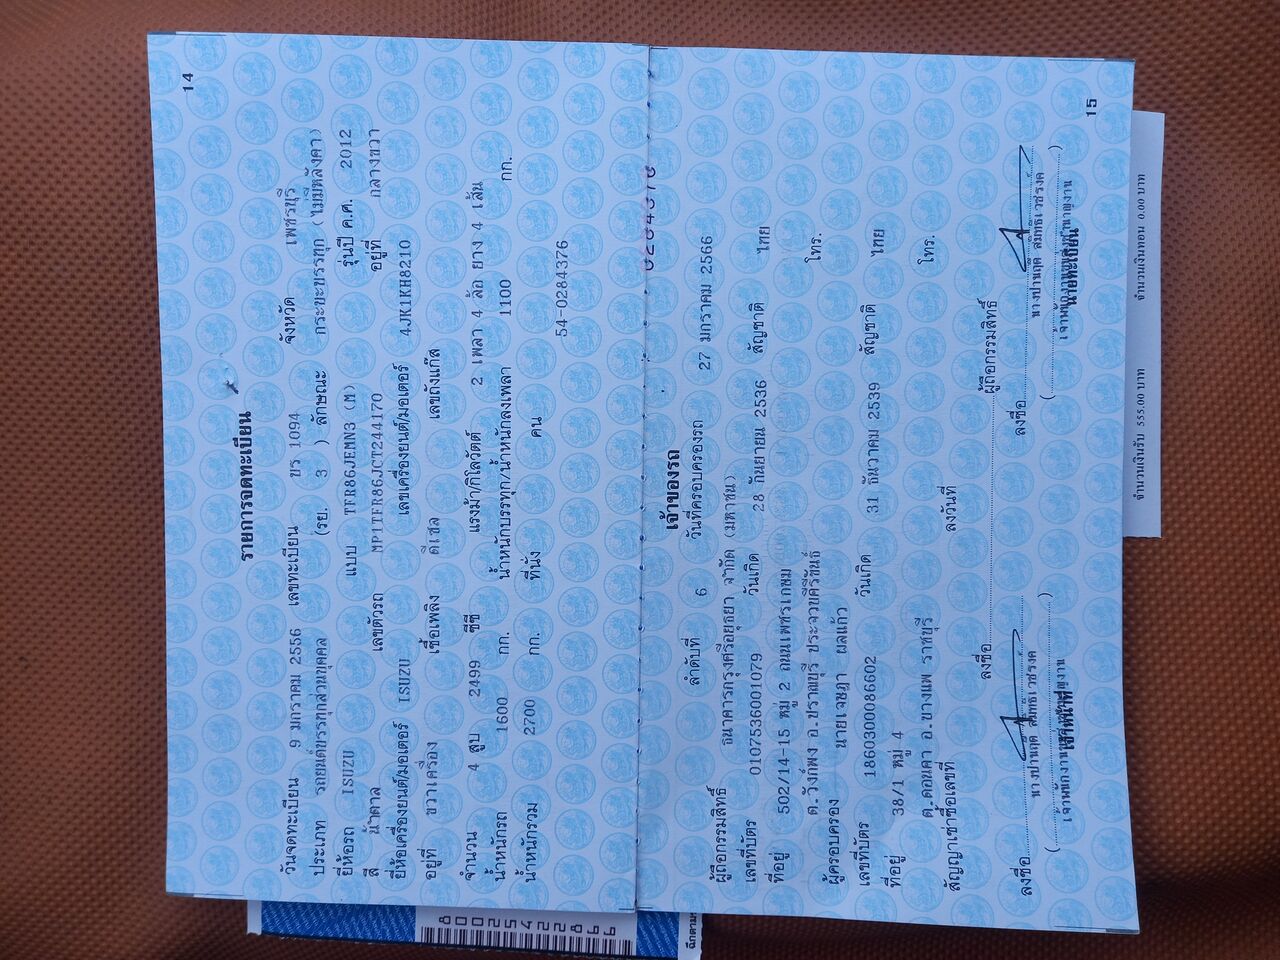 14
รายการจดทะเบียน
วันจดทะเบียน 9 มกราคม 2556 เลขทะเบียน บร 1094 จังหวัด เพชรบุรี
ประเภท รถยนต์บรรทุกส่วนบุคคล (รย. 3 ) ลักษณะ กระบะบรรทุก (ไม่มีหลังคา)
ยี่ห้อรถ ISUZU แบบ TFR86JEMN3 (M) รุ่นปี ค.ศ. 2012
สี น้ำตาล เลขตัวรถ MP1TFR86JCT244170 อยู่ที่ กลางขวา
ยี่ห้อเครื่องยนต์/มอเตอร์ ISUZU เลขเครื่องยนต์/มอเตอร์ 4JK1KH8210
อยู่ที่ ขวาเครื่อง เชื้อเพลิง ดีเซล เลขถังแก๊ส
จำนวน 4 สูบ 2499 ซีซี แรงม้า/กิโลวัตต์ 2 เพลา 4 ล้อ ยาง 4 เส้น
น้ำหนักรถ 1600 กก. น้ำหนักบรรทุก/น้ำหนักลงเพลา 1100 กก.
น้ำหนักรวม 2700 กก. ที่นั่ง คน
54-0284376
เจ้าของรถ
ลำดับที่ 6 วันที่ครอบครองรถ 27 มกราคม 2566
ผู้ถือกรรมสิทธิ์ ธนาคารกรุงศรีอยุธยา จำกัด (มหาชน)
เลขที่บัตร 0107536001079 วันเกิด 28 กันยายน 2536 สัญชาติ ไทย
ที่อยู่ 502/14-15 หมู่ 2 ถนนเพชรเกษม โทร.
ต.วังก์พง อ.ปราณบุรี ประจวบคีรีขันธ์
ผู้ครอบครอง นายเจษฎา ผลแก้ว
เลขที่บัตร 1860300086602 วันเกิด 31 ธันวาคม 2539 สัญชาติ ไทย
ที่อยู่ 38/1 หมู่ 4 โทร.
ต.ดอนคา อ.บางแพ ราชบุรี
สัญญาเช่าซื้อเลขที่ ลงวันที่
ลงชื่อ ผู้ถือกรรมสิทธิ์
ลงชื่อ ลงชื่อ
เจ้าหน้าที่ นายทะเบียน
15
จำนวนเงินรับ 555.00 บาท จำนวนเงินทอน 0.00 บาท
8002542286 6
ฉีกตาม